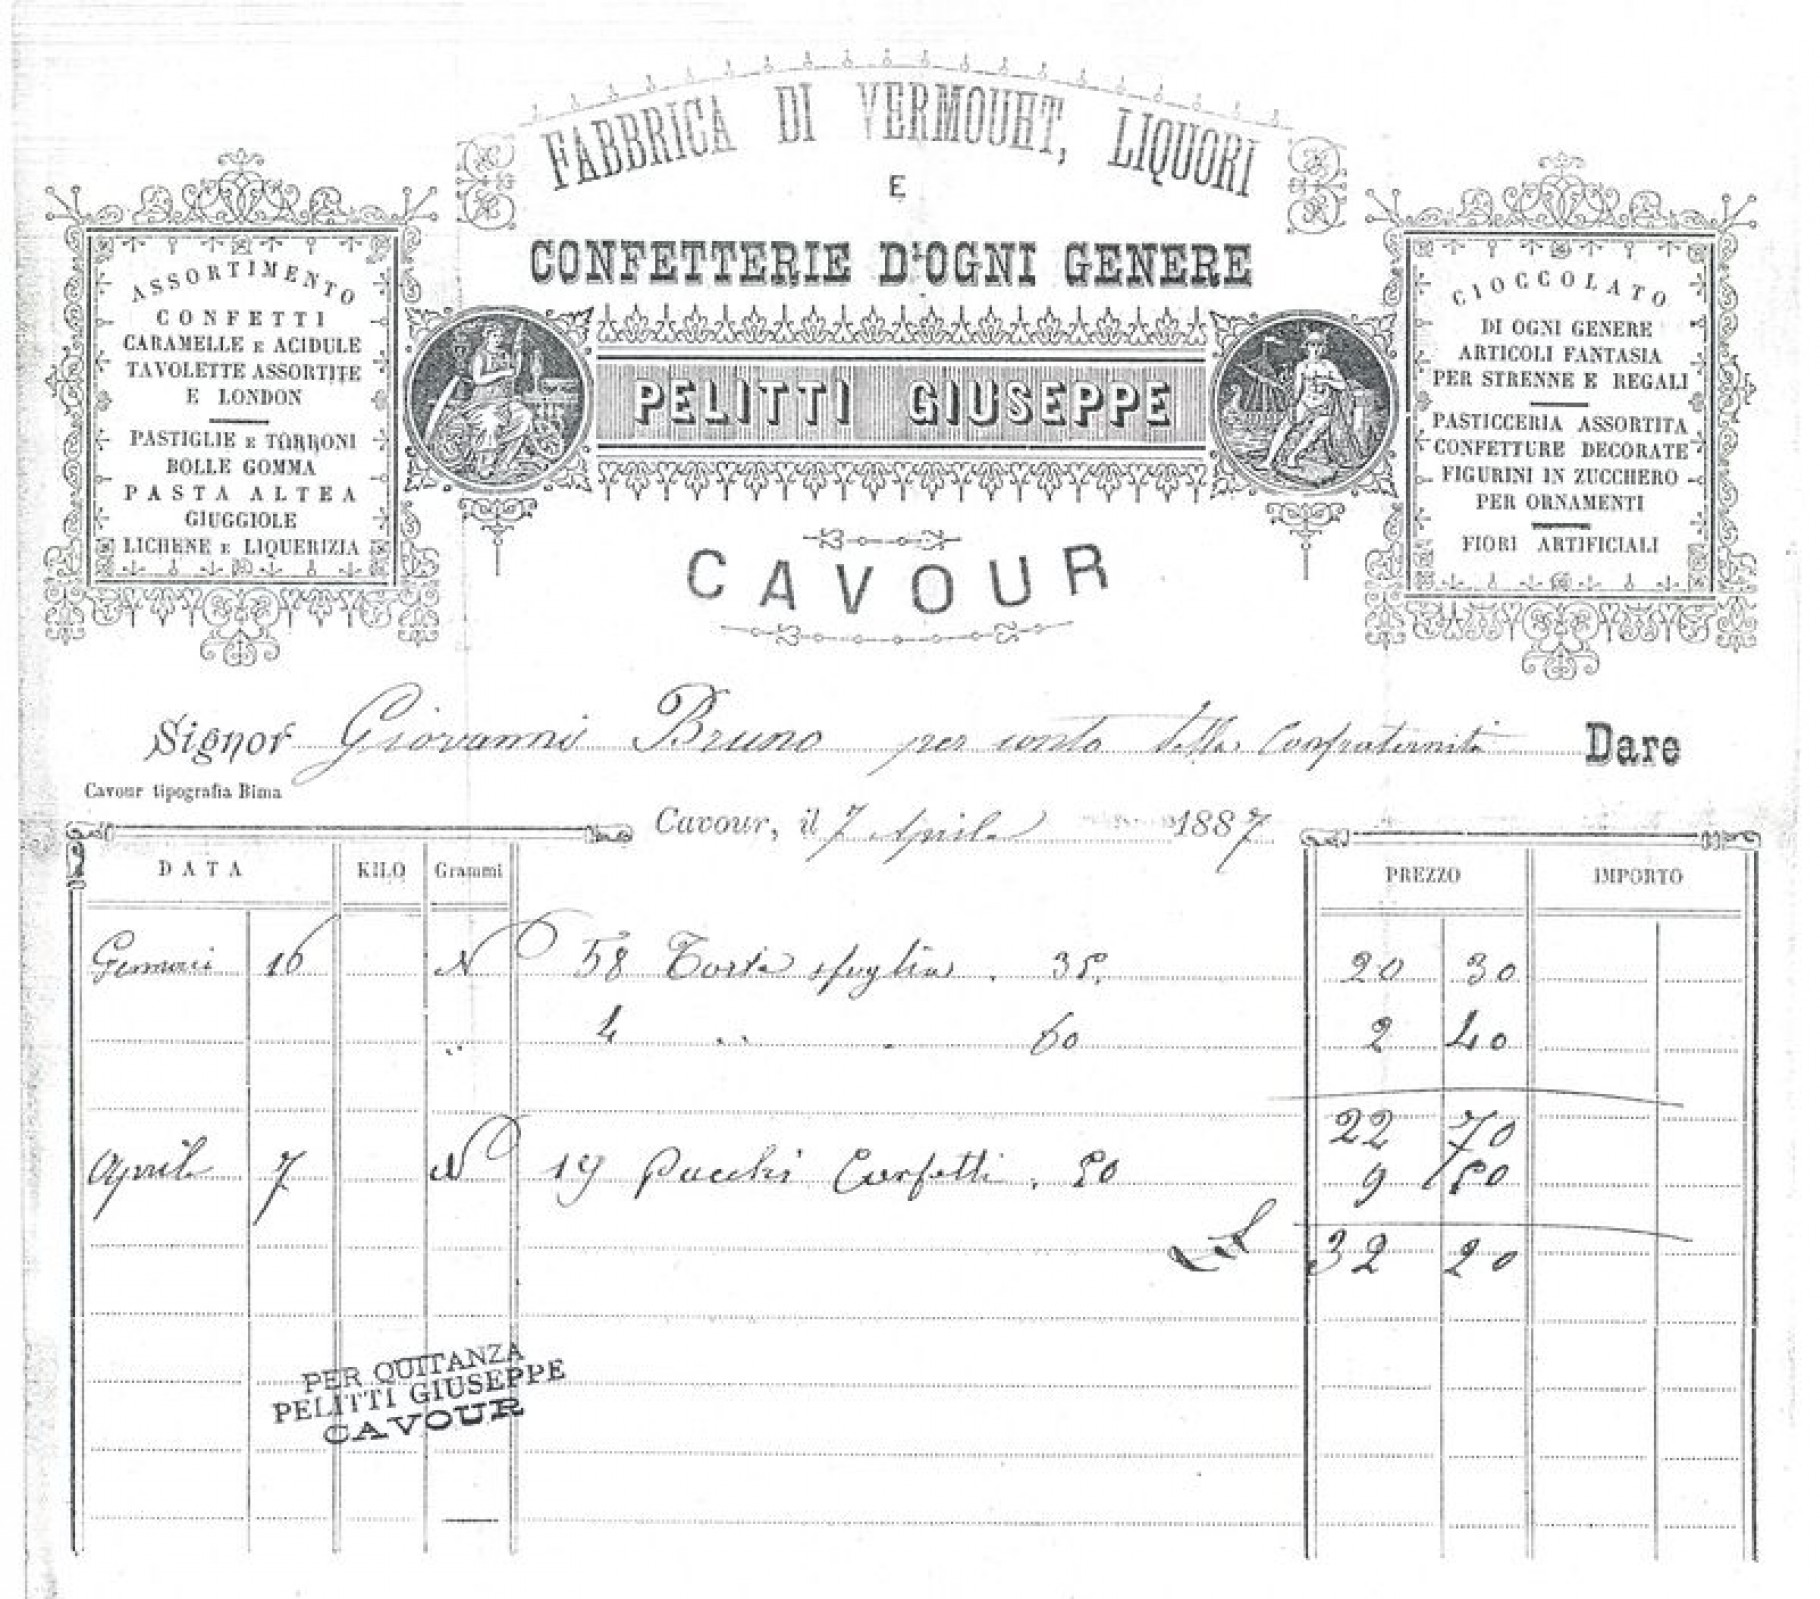 FABBRICA DI VERMOUHT, LIQUORI
E
CONFETTERIE D'OGNI GENERE
PELITTI GIUSEPPE
CAVOUR
ASSORTIMENTO
CONFETTI
CARAMELLE E ACIDULE
TAVOLETTE ASSORTITE
E LONDON
PASTIGLIE E TORRONI
BOLLE GOMMA
PASTA ALTEA
GIUGGIOLE
LICHENE E LIQUERIZIA
CIOCCOLATO
DI OGNI GENERE
ARTICOLI FANTASIA
PER STRENNE E REGALI
PASTICCERIA ASSORTITA
CONFETTURE DECORATE
FIGURINI IN ZUCCHERO
PER ORNAMENTI
FIORI ARTIFICIALI
Signor Giovanni Bruno per conto della Confraternita Dare
Cavour tipografia Bima
Cavour, il 7 Aprile 1887
DATA KILO Grammi PREZZO IMPORTO
16 N 58 Torta sfoglia . 35, 20 30
" 4 " . 60 2 40
22 70
Aprile 7 N 19 Pacchi Confetti . 50 9 50
32 20
PER QUITANZA
PELITTI GIUSEPPE
CAVOUR